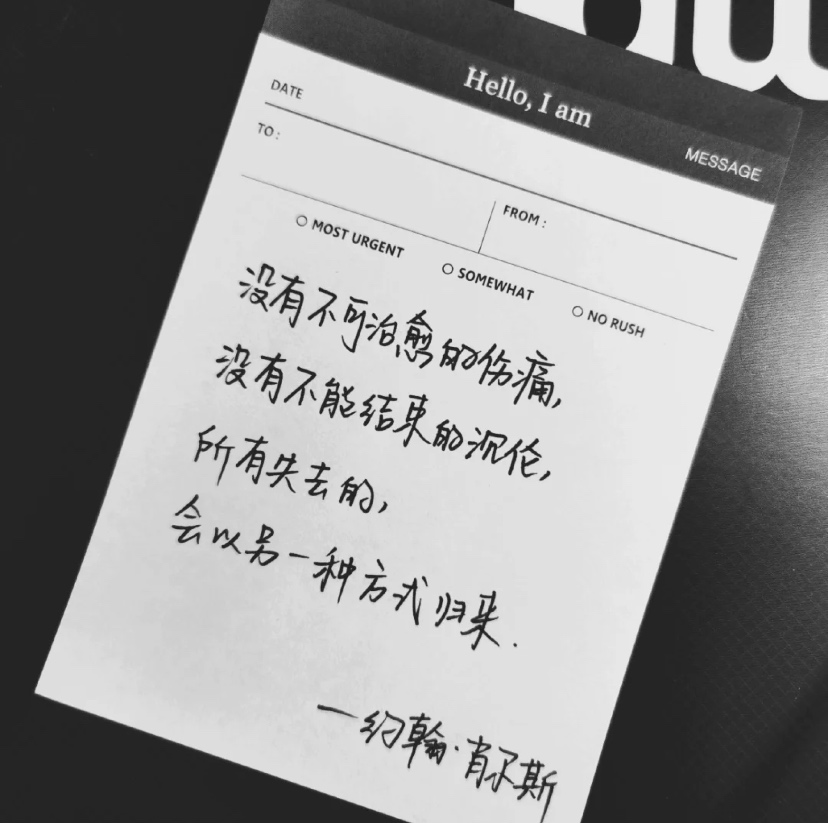 Hello, I am
MESSAGE
DATE
TO:
FROM:
MOST URGENT
SOMEWHAT
NO RUSH
没有不可治愈的伤痛,
没有不能结束的沉伦,
所有失去的,
会以另一种方式归来.
一约翰·肖尔斯